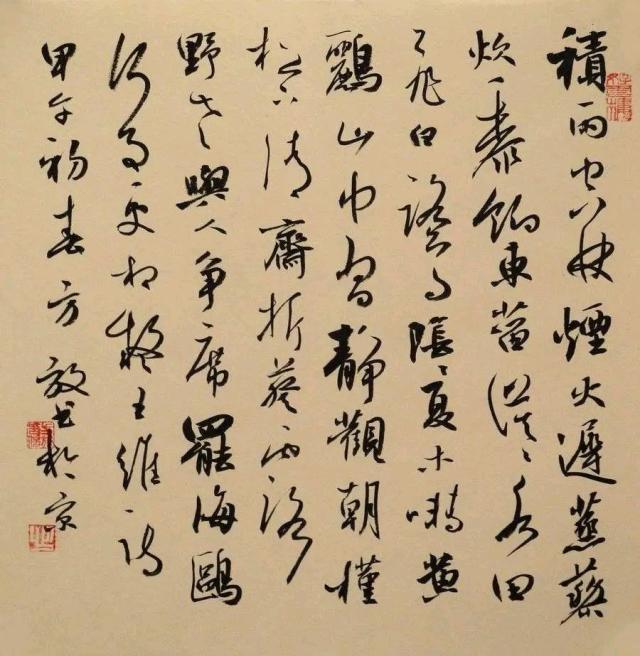 積雨空林煙火遲蒸藜
炊黍餉東菑漠〻水田
飛白鷺陰〻夏木囀黄
鸝山中習靜觀朝槿
松下清齋折葵露
野老與人争席罷海鷗
何事更相疑王維詩
甲午初春方书於京